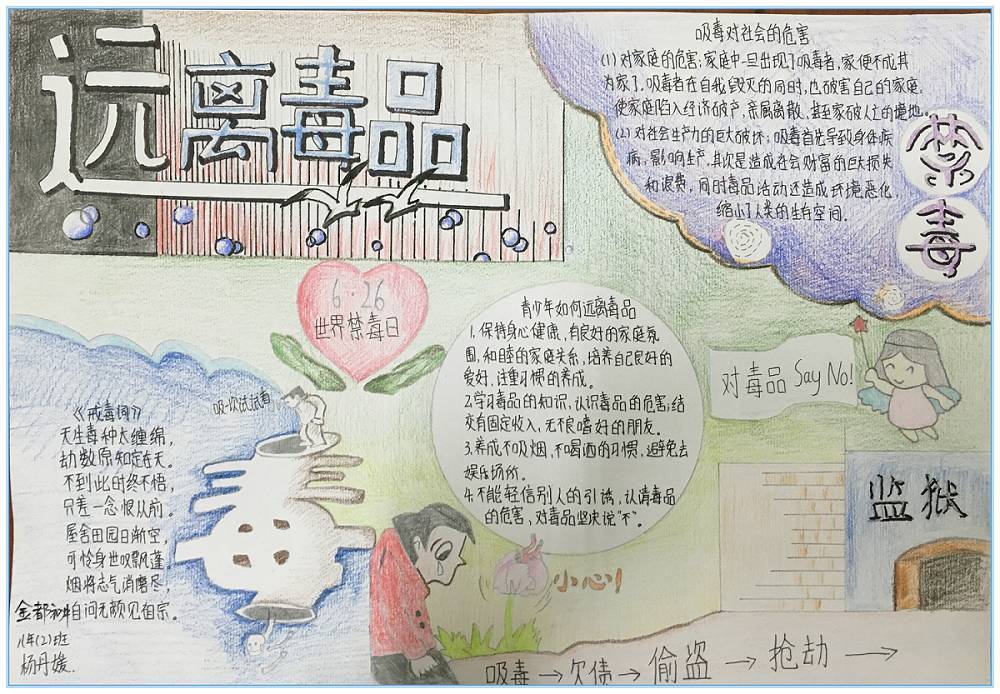 远离毒品
吸毒对社会的危害
(1) 对家庭的危害:家庭中一旦出现了吸毒者,家便不成其
为家了。吸毒者在自我毁灭的同时,也破害自己的家庭,
使家庭陷入经济破产,亲属离散,甚至家破人亡的境地。
(2) 对社会生产力的巨大破坏:吸毒首先导致身体疾
病,影响生产,其次是造成社会财富的巨大损失
和浪费,同时毒品活动还造成环境恶化,
缩小了人类的生存空间。
禁
毒
6·26
世界禁毒日
青少年如何远离毒品
1.保持身心健康,有良好的家庭氛
围,和睦的家庭关系,培养自己良好的
爱好,注重习惯的养成。
2.学习毒品的知识,认识毒品的危害;结
交有固定收入,无不良嗜好的朋友。
3.养成不吸烟,不喝酒的习惯,避免去
娱乐场所。
4.不能轻信别人的引诱,认清毒品
的危害,对毒品坚决说“不”。
对毒品 Say No!
吸一次试试看
《戒毒词》
天生毒种太缠绵,
劫数原知定在天。
不到此时终不悟,
只差一念恨从前。
屋舍田园日渐空,
可怜身世叹飘蓬。
烟将志气消磨尽,
自问无颜见祖宗。
八年(2)班
杨丹媛
小心!
监狱
吸毒→欠债→偷盗→抢劫→